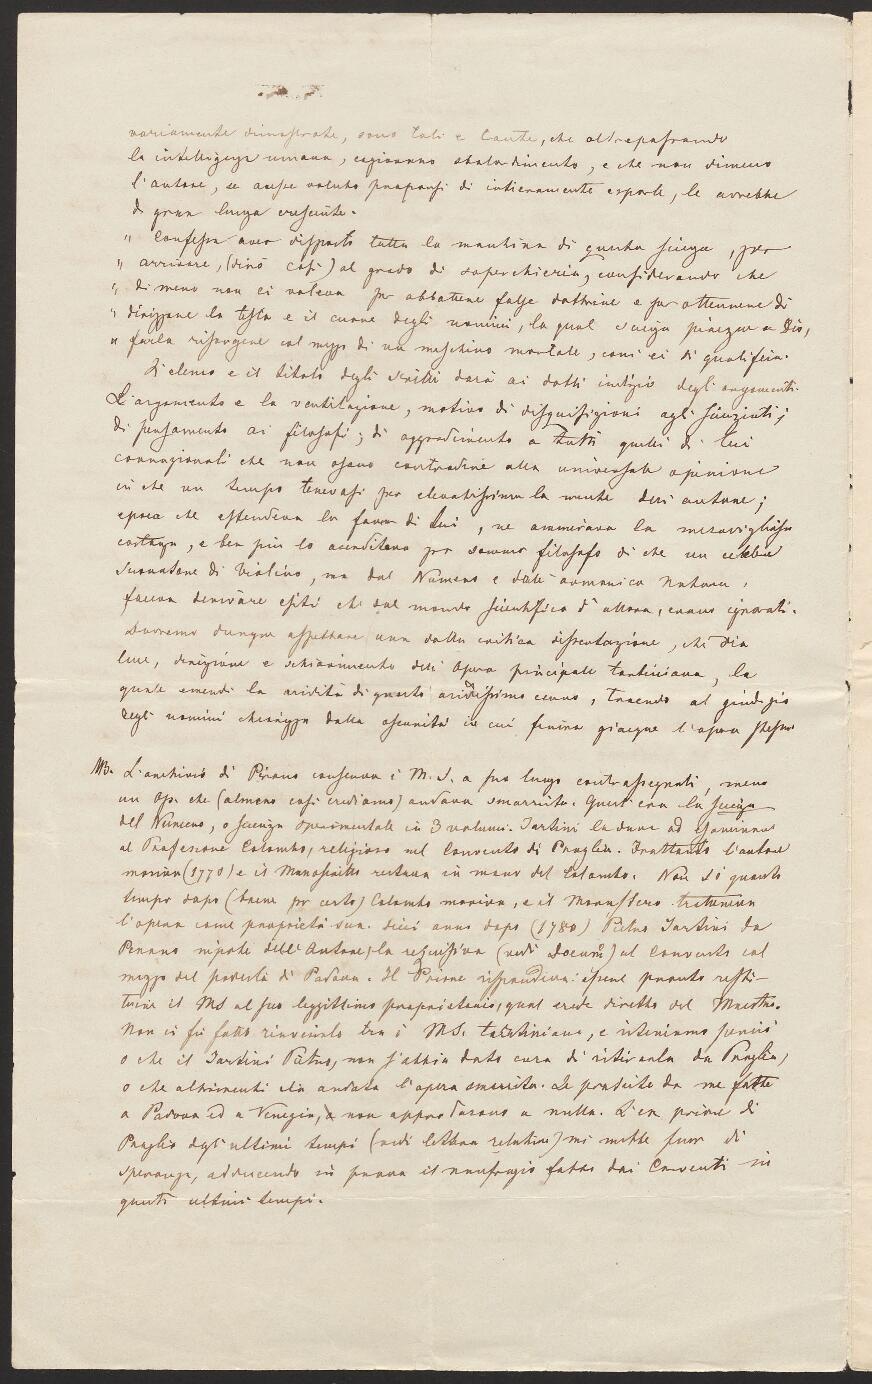 variamente dimostrate, sono tali e tante, che oltrepassando
la intelligenza umana, cagionano sbalordimento, e che non dimeno
l'autore, se avesse voluto proporsi di intieramente esporle, le avrebbe
di gran lunga cresciute.
" Confessa aver disposto tutta la machina di questa scienza, per
" arrivare, (dirò così) al grado di soperchieria, considerando che
" di meno non ci voleva per abbattere false dottrine e per ottennere di
" dirizzare la testa e il cuore degli uomini, la qual scienza piacque a Dio,
" farla risorgere col mezzo di un meschino mortale, così ei si qualifica.
L'elenco e il titolo degli scritti darà ai dotti indizio degli argomenti.
L'argomento e la ventilazione, motivo di disquisizioni agli scienziati;
di pensamento ai filosofi; di aggradimento a tutti quelli di lui
connazionali che non osano contradire alla universale opinione
in che un tempo tenevasi per elevatissima la mente dell'autore;
epoca che estendeva la fama di lui, ne ammirava la meravigliosa
, e ben più lo accreditava per sommo filosofo di che un celebre
Suonatore di Violino, ma dal Numero e dall'armonica Natura,
faceva derivare esiti che dal mondo scientifico d'allora, erano ignorati.
Dovremo dunque aspettare una dotta critica dissertazione, che dia
luce, direzione e schiarimento dell'Opera principale tartiniana, la
quale emendi la aridità di questo aridissimo cenno, traendo al giudizio
degli uomini chiarezza dalla oscurità in cui finora giacque l'opera stessa.
NB. L'archivio di Pirano conserva i M.S. a suo luogo contrassegnati, meno
un Op. che (almeno così crediamo) andava smarrita. Quest'era la scienza
del Numero, o scienza sperimentale in 3 volumi. Tartini la diede ad esaminare
al Professore Colombo, religioso nel Convento di Praglia. Frattanto l'autore
moriva (1770) e il Manoscritto restava in mano del Colombo. Non si quanto
tempo dopo (breve per certo) Colombo moriva, e il Monastero tratteneva
l'opera come proprietà sua. Dieci anni dopo (1780) Pietro Tartini da
Pirano nipote dell'Autore, la (vedi Docum.) al Convento col
mezzo del podestà di Padova. Il Priore rispondeva: essere pronto resti-
tuire il MS al suo legittimo proprietario, qual erede diretto del Maestro.
Non ci fu fatto rinvenirlo tra i MS. tartiniani, e riteniamo perciò
o che il Tartini Pietro, non s'abbia dato cura di ritirarla da Praglia,
o che altrimenti sia andata l'opera smarrita. Le pratiche da me fatte
a Padova ed a Venezia, non approdarono a nulla. L'ex priore di
Praglia degli ultimi tempi (vedi lettera relativa) mi mette fuor di
speranza, adducendo in prova il naufragio fatto dai Conventi in
questi ultimi tempi.